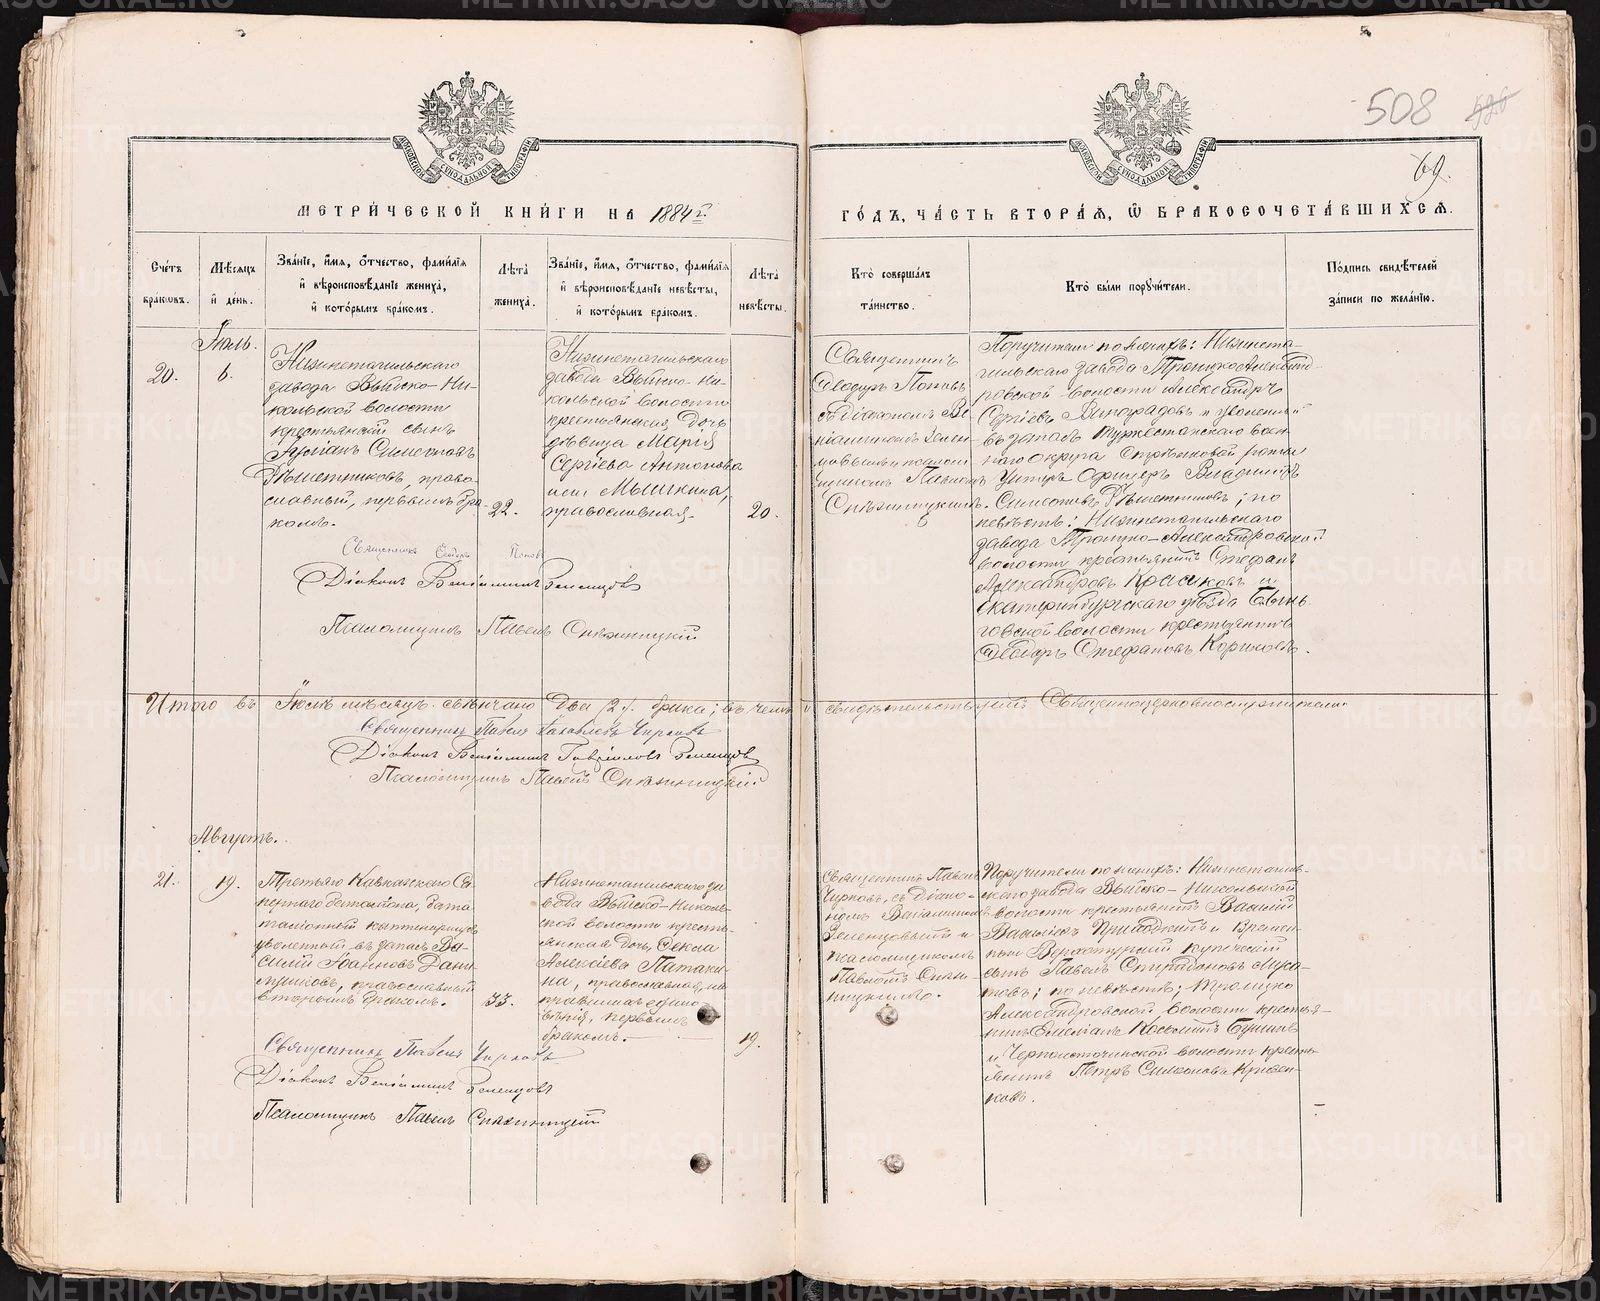 508
69.
МЕТРИ́ЧЕСКОЙ КНИ́ГИ НА 1884 г.
ГО́ДЪ, ЧА́СТЬ ВТОРА́Я, Ѡ БРАКОСОЧЕТА́ВШИХСЯ.
Сче́тъ бра́кѡвъ.
Мѣ́сяцъ и҆ де́нь.
Зва́нїе, и҆́мя, ѻ҆́тчество, фами́лїя и҆ вѣроисповѣ́данїе жениха́, и҆ кото́рымъ бра́комъ.
Лѣ́та жениха́.
Зва́нїе, и҆́мя, ѻ҆́тчество, фами́лїя и҆ вѣроисповѣ́данїе невѣ́сты, и҆ кото́рымъ бра́комъ.
Лѣ́та невѣ́сты.
Кто̀ соверша́лъ та́инство.
Кто̀ бы́ли порꙋчи́тели.
По́дпись свидѣ́телей за́писи по жела́нїю.
Іюль.
20.
6.
Нижнетагильскаго
завода Выйско-Ни-
кольской волости
крестьянскій сынъ
Симеоновъ
Рѣшетниковъ, право-
славный, первымъ бра-
комъ.
22.
Нижнетагильскаго
завода Выйско-Ни-
кольской волости
крестьянская дочь
дѣвица Марія
Сергіева Антонова
или Мышкина,
православная.
20.
Священникъ
Ѳеодоръ Поповъ
съ діакономъ Ве-
ніаминомъ Зелен-
цовымъ и псалом-
щикомъ Павломъ
Поручители по женихѣ: Нижнета-
гильскаго завода Троицко-Александ-
ровской волости Александръ
Сергіевъ Виноградовъ и уволенный
въ запасъ Туркестанскаго воен-
наго округа Стрѣлковой роты
Унтеръ Офицеръ Владиміръ
Симеоновъ Рѣшетниковъ; по
невѣстѣ: Нижнетагильскаго
завода Троицко-Александровской
волости крестьянинъ Стефанъ
Александровъ Красиковъ и
Екатеринбургскаго уѣзда Бынь-
говской волости крестьянинъ
Ѳеодоръ Стефановъ
Священникъ Ѳеодоръ Поповъ
Діаконъ Веніаминъ Зеленцовъ
Псаломщикъ Павелъ
Итого въ Іюлѣ мѣсяцѣ вѣнчано два /2/ брака; въ чемъ и свидѣтельствуемъ Священноцерковнослужители:
Священникъ Павелъ Чирковъ
Діаконъ Веніаминъ Гавріиловъ Зеленцовъ
Псаломщикъ Павелъ
Августъ.
21.
19.
Третьяго Кавказскаго Са-
пернаго баталіона, бата-
ліонный
уволенный въ запасъ Ва-
силій Іоанновъ Дани-
, православный
вторымъ бракомъ.
33.
Нижнетагильскаго за-
вода Выйско-Николь-
ской волости кресть-
янская дочь, Ѳекла
Алексіева Патаки-
на, православная, на
правилахъ едино-
вѣрія, первымъ
бракомъ.
19.
Священникъ Павелъ
Чирковъ, съ Діако-
номъ Веніаминомъ
Зеленцовымъ и
псаломщикомъ
Павломъ
Поручители по женихѣ: Нижнетагиль-
скаго завода Выйско-Никольской
волости крестьянинъ Василій
Васильевъ и Времен-
ный Верхотурскій купеческій
сынъ Павелъ Спиридоновъ Муса-
товъ; по невѣстѣ; Троицко
Александровской волости кресть-
янинъ Емеліанъ Косьминъ
и Черноисточинской волости кресть-
янинъ Петръ Симеоновъ Кривен-
ковъ.
Священникъ Павелъ Чирковъ
Діаконъ Веніаминъ Зеленцовъ
Псаломщикъ Павелъ
METRIKI.GASO-URAL.RU